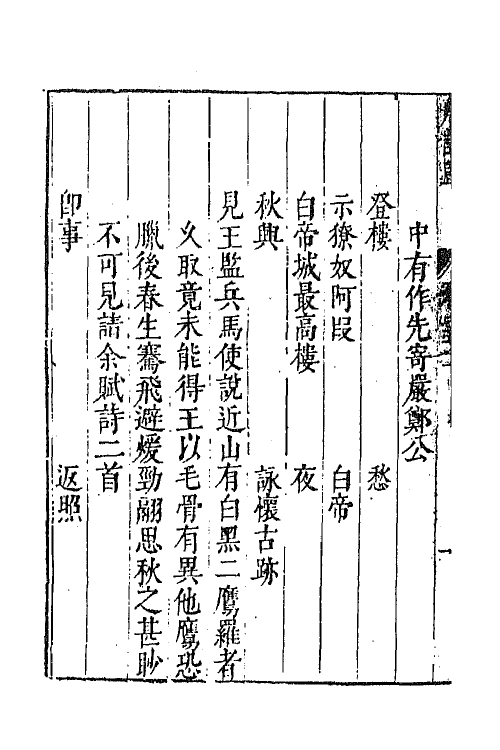 中有作先寄嚴鄭公
登樓　愁
示獠奴阿段　白帝
白帝城最高樓　夜
秋興　詠懷古跡
見王監兵馬使說近山有白黑二鷹羅者
久取竟未能得王以毛骨有異他鷹恐
臘後春生騫飛避煖勁翮思秋之甚眇
不可見請余賦詩二首
即事　返照